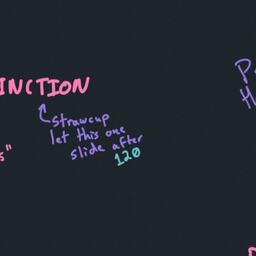 INCTION
strawcup
let this one
slide after
120
s"